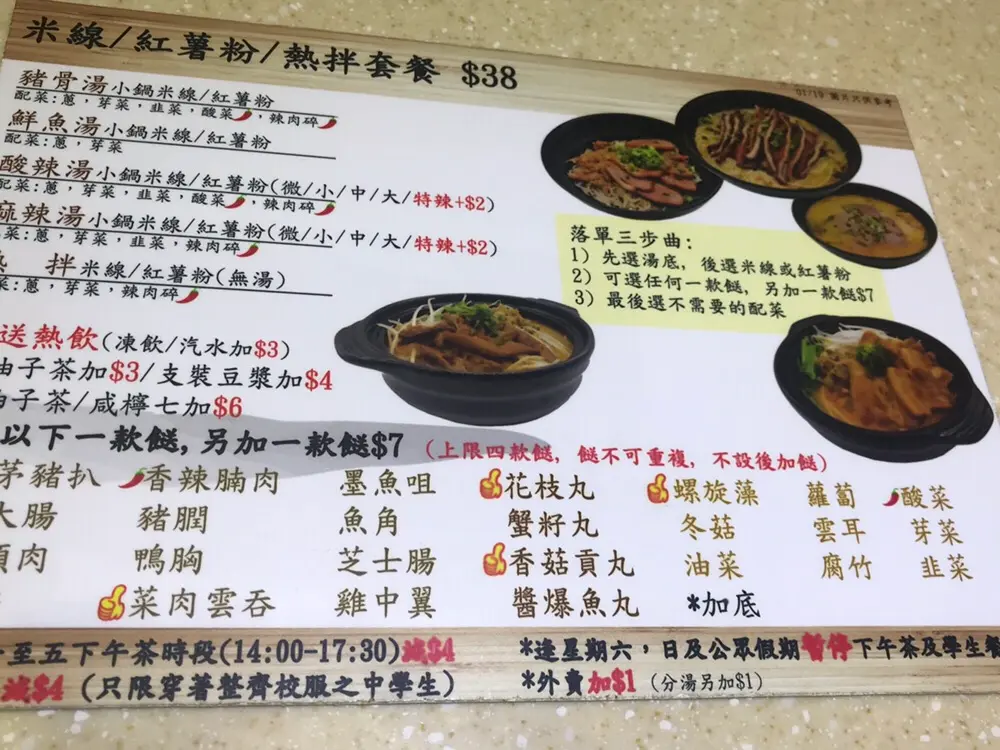 米線/紅薯粉/熱拌套餐 $38
07/19 圖片只供參考
豬骨湯小鍋米線/紅薯粉
配菜:蔥,芽菜,韭菜,酸菜,辣肉碎
鮮魚湯小鍋米線/紅薯粉
配菜:蔥,芽菜
酸辣湯小鍋米線/紅薯粉(微/小/中/大/特辣+$2)
配菜:蔥,芽菜,韭菜,酸菜,辣肉碎
麻辣湯小鍋米線/紅薯粉(微/小/中/大/特辣+$2)
菜:蔥,芽菜,韭菜,辣肉碎
熱 拌米線/紅薯粉(無湯)
菜:蔥,芽菜,辣肉碎
落單三步曲:
1) 先選湯底, 後選米線或紅薯粉
2) 可選任何一款餸, 另加一款餸$7
3) 最後選不需要的配菜
送熱飲(凍飲/汽水加$3)
柚子茶加$3/支裝豆漿加$4
柚子茶/咸檸七加$6
以下一款餸,另加一款餸$7 (上限四款餸, 餸不可重複, 不設後加餸)
茅豬扒 香辣腩肉 墨魚咀 花枝丸 螺旋藻 蘿蔔 酸菜
大腸 豬膶 魚角 蟹籽丸 冬菇 雲耳 芽菜
肉 鴨胸 芝士腸 香菇貢丸 油菜 腐竹 韭菜
菜肉雲吞 雞中翼 醬爆魚丸 *加底
至五下午茶時段(14:00-17:30)減$4
*逢星期六,日及公眾假期暫停下午茶及學生餐
減$4 (只限穿著整齊校服之中學生)
*外賣加$1 (分湯另加$1)